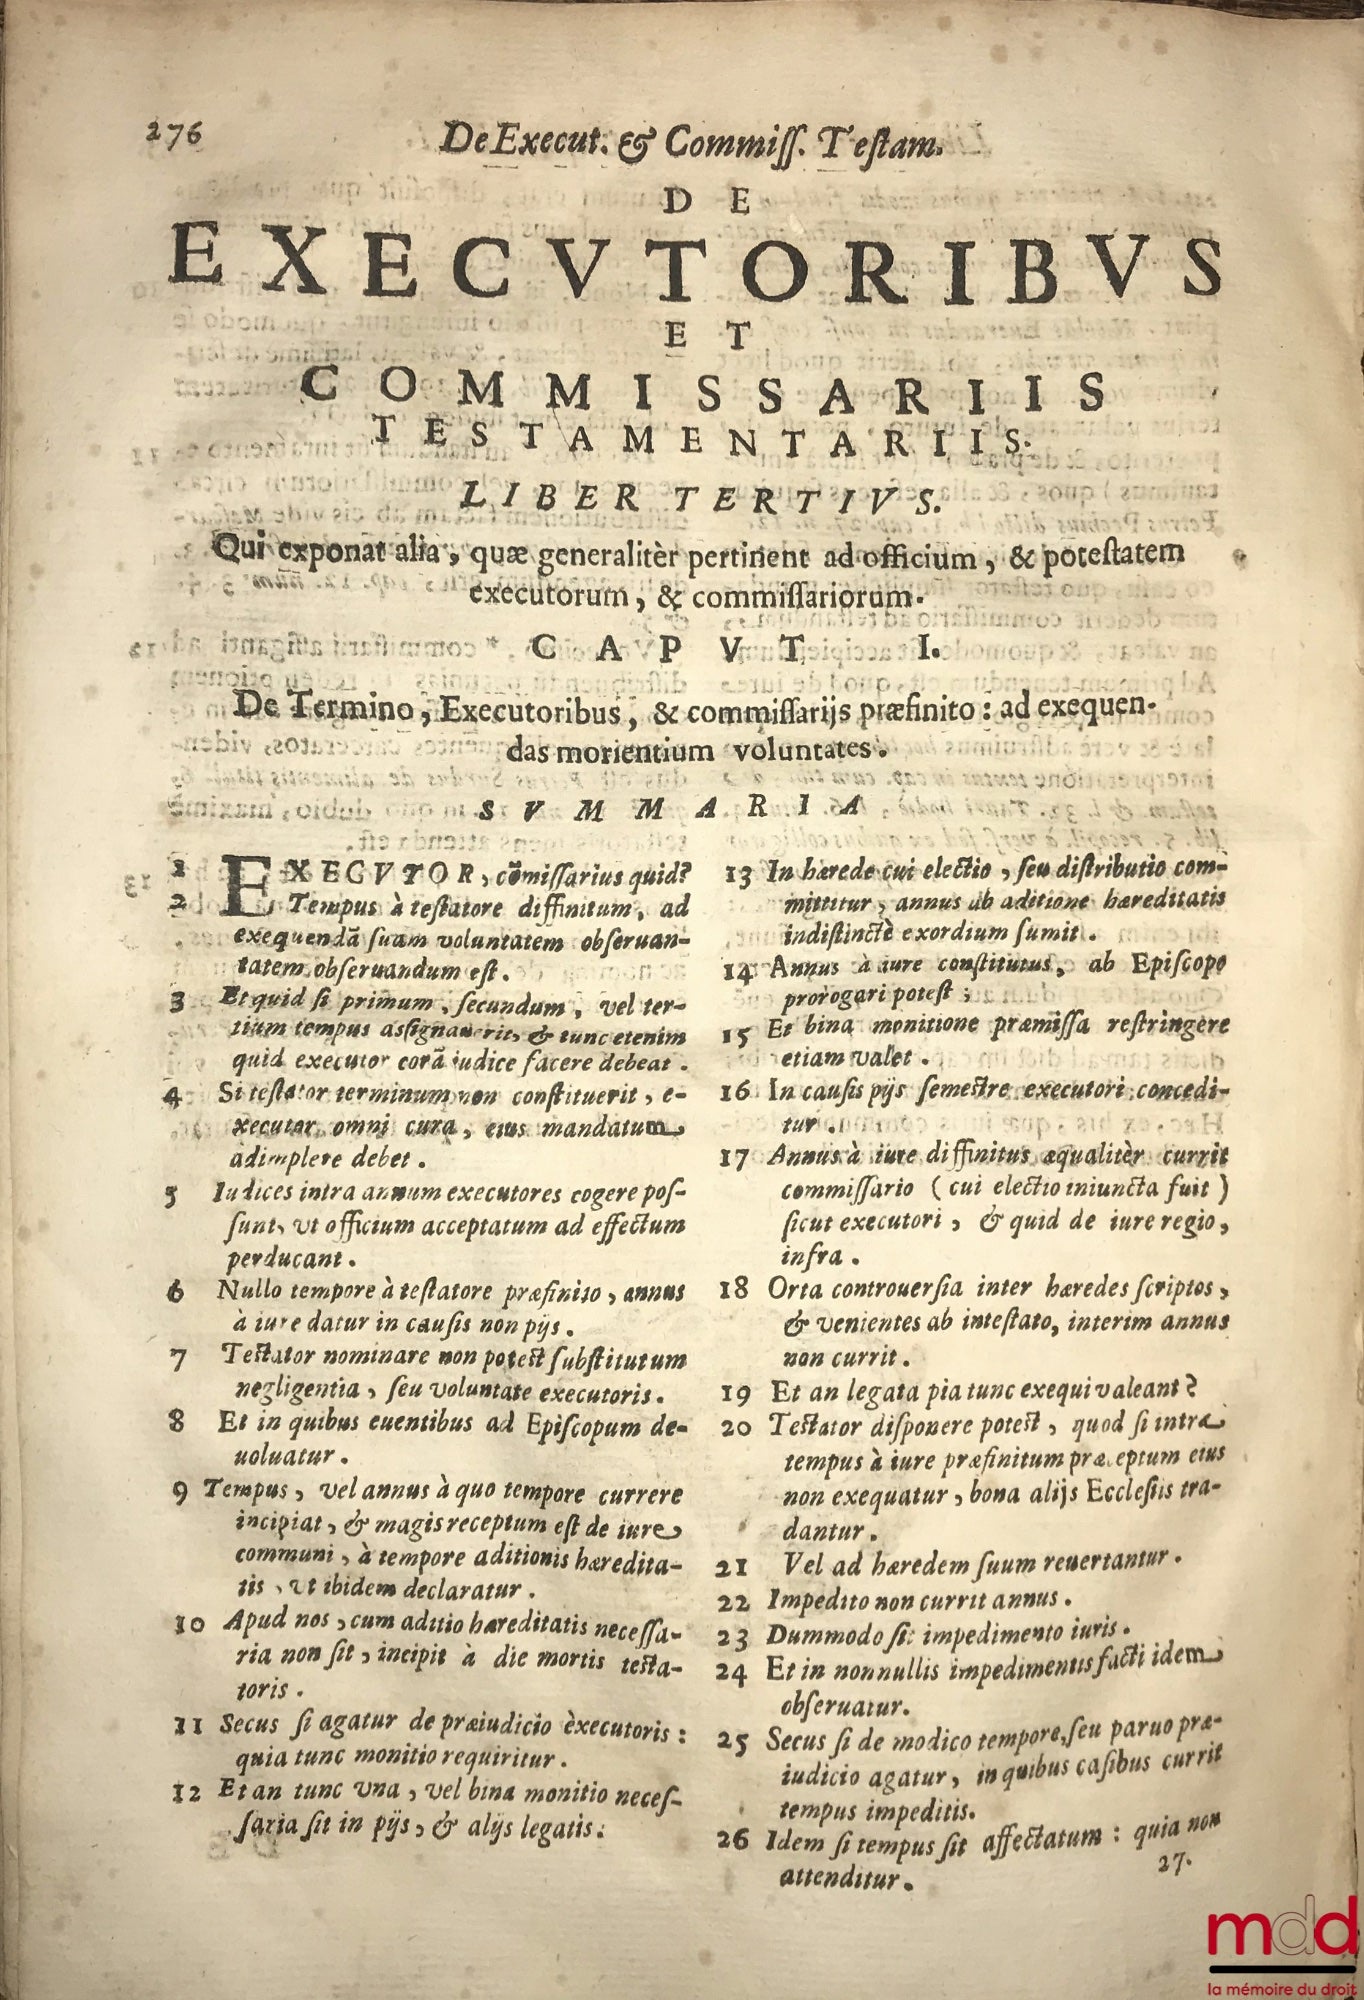 276
De Execut. & Commiss. Testam.
DE
EXECVTORIBVS
ET
COMMISSARIIS
TESTAMENTARIIS.
LIBER TERTIVS.
Qui exponat alia, quæ generalitèr pertinent ad officium, & potestatem
executorum, & commissariorum.
CAPVT I.
De Termino, Executoribus, & commissarijs præfinito: ad exequen-
das morientium voluntates.
SVMMARIA
1 EXECVTOR, cõmissarius quid?
2 Tempus à testatore diffinitum, ad
exequendã suam voluntatem obseruan-
tatem obseruandum est.
3 Et quid si primum, secundum, vel ter-
tium tempus assignauerit, & tunc etenim
quid executor corã iudice facere debeat.
4 Si testator terminum non constituerit, e-
xecutor omni cura, eius mandatum
adimplere debet.
5 Iudices intra annum executores cogere pos-
sunt, vt officium acceptatum ad effectum
perducant.
6 Nullo tempore à testatore præfinito, annus
à iure datur in causis non pijs.
7 Testator nominare non potest substitutum
negligentia, seu voluntate executoris.
8 Et in quibus euentibus ad Episcopum de-
uoluatur.
9 Tempus, vel annus à quo tempore currere
incipiat, & magis receptum est de iure
communi, à tempore aditionis hæredita-
tis, vt ibidem declaratur.
10 Apud nos, cum aditio hæreditatis necessa-
ria non sit, incipit à die mortis testa-
toris.
11 Secus si agatur de præiudicio èxecutoris:
quia tunc monitio requiritur.
12 Et an tunc vna, vel bina monitio neces-
saria sit in pijs, & alijs legatis.
13 In hærede cui electio, seu distributio com-
mittitur, annus ab aditione hæreditatis
indistinctè exordium sumit.
14 Annus à iure constitutus, ab Episcopo
prorogari potest;
15 Et bina monitione præmissa restringere
etiam valet.
16 In causis pijs semestre executori concedi-
tur.
17 Annus à iure diffinitus æqualitèr currit
commissario (cui electio iniuncta fuit)
sicut executori, & quid de iure regio,
infra.
18 Orta controuersia inter hæredes scriptos,
& venientes ab intestato, interim annus
non currit.
19 Et an legata pia tunc exequi valeant?
20 Testator disponere potest, quod si intra
tempus à iure præfinitum præceptum eius
non exequatur, bona alijs Ecclesiis tra-
dantur.
21 Vel ad hæredem suum reuertantur.
22 Impedito non currit annus.
23 Dummodo sit impedimento iuris.
24 Et in nonnullis impedimentis facti idem
obseruatur.
25 Secus si de modico tempore, seu paruo præ-
iudicio agatur, in quibus casibus currit
tempus impeditis.
26 Idem si tempus sit affectatum: quia non
attenditur.
27.
mdd
la mémoire du droit